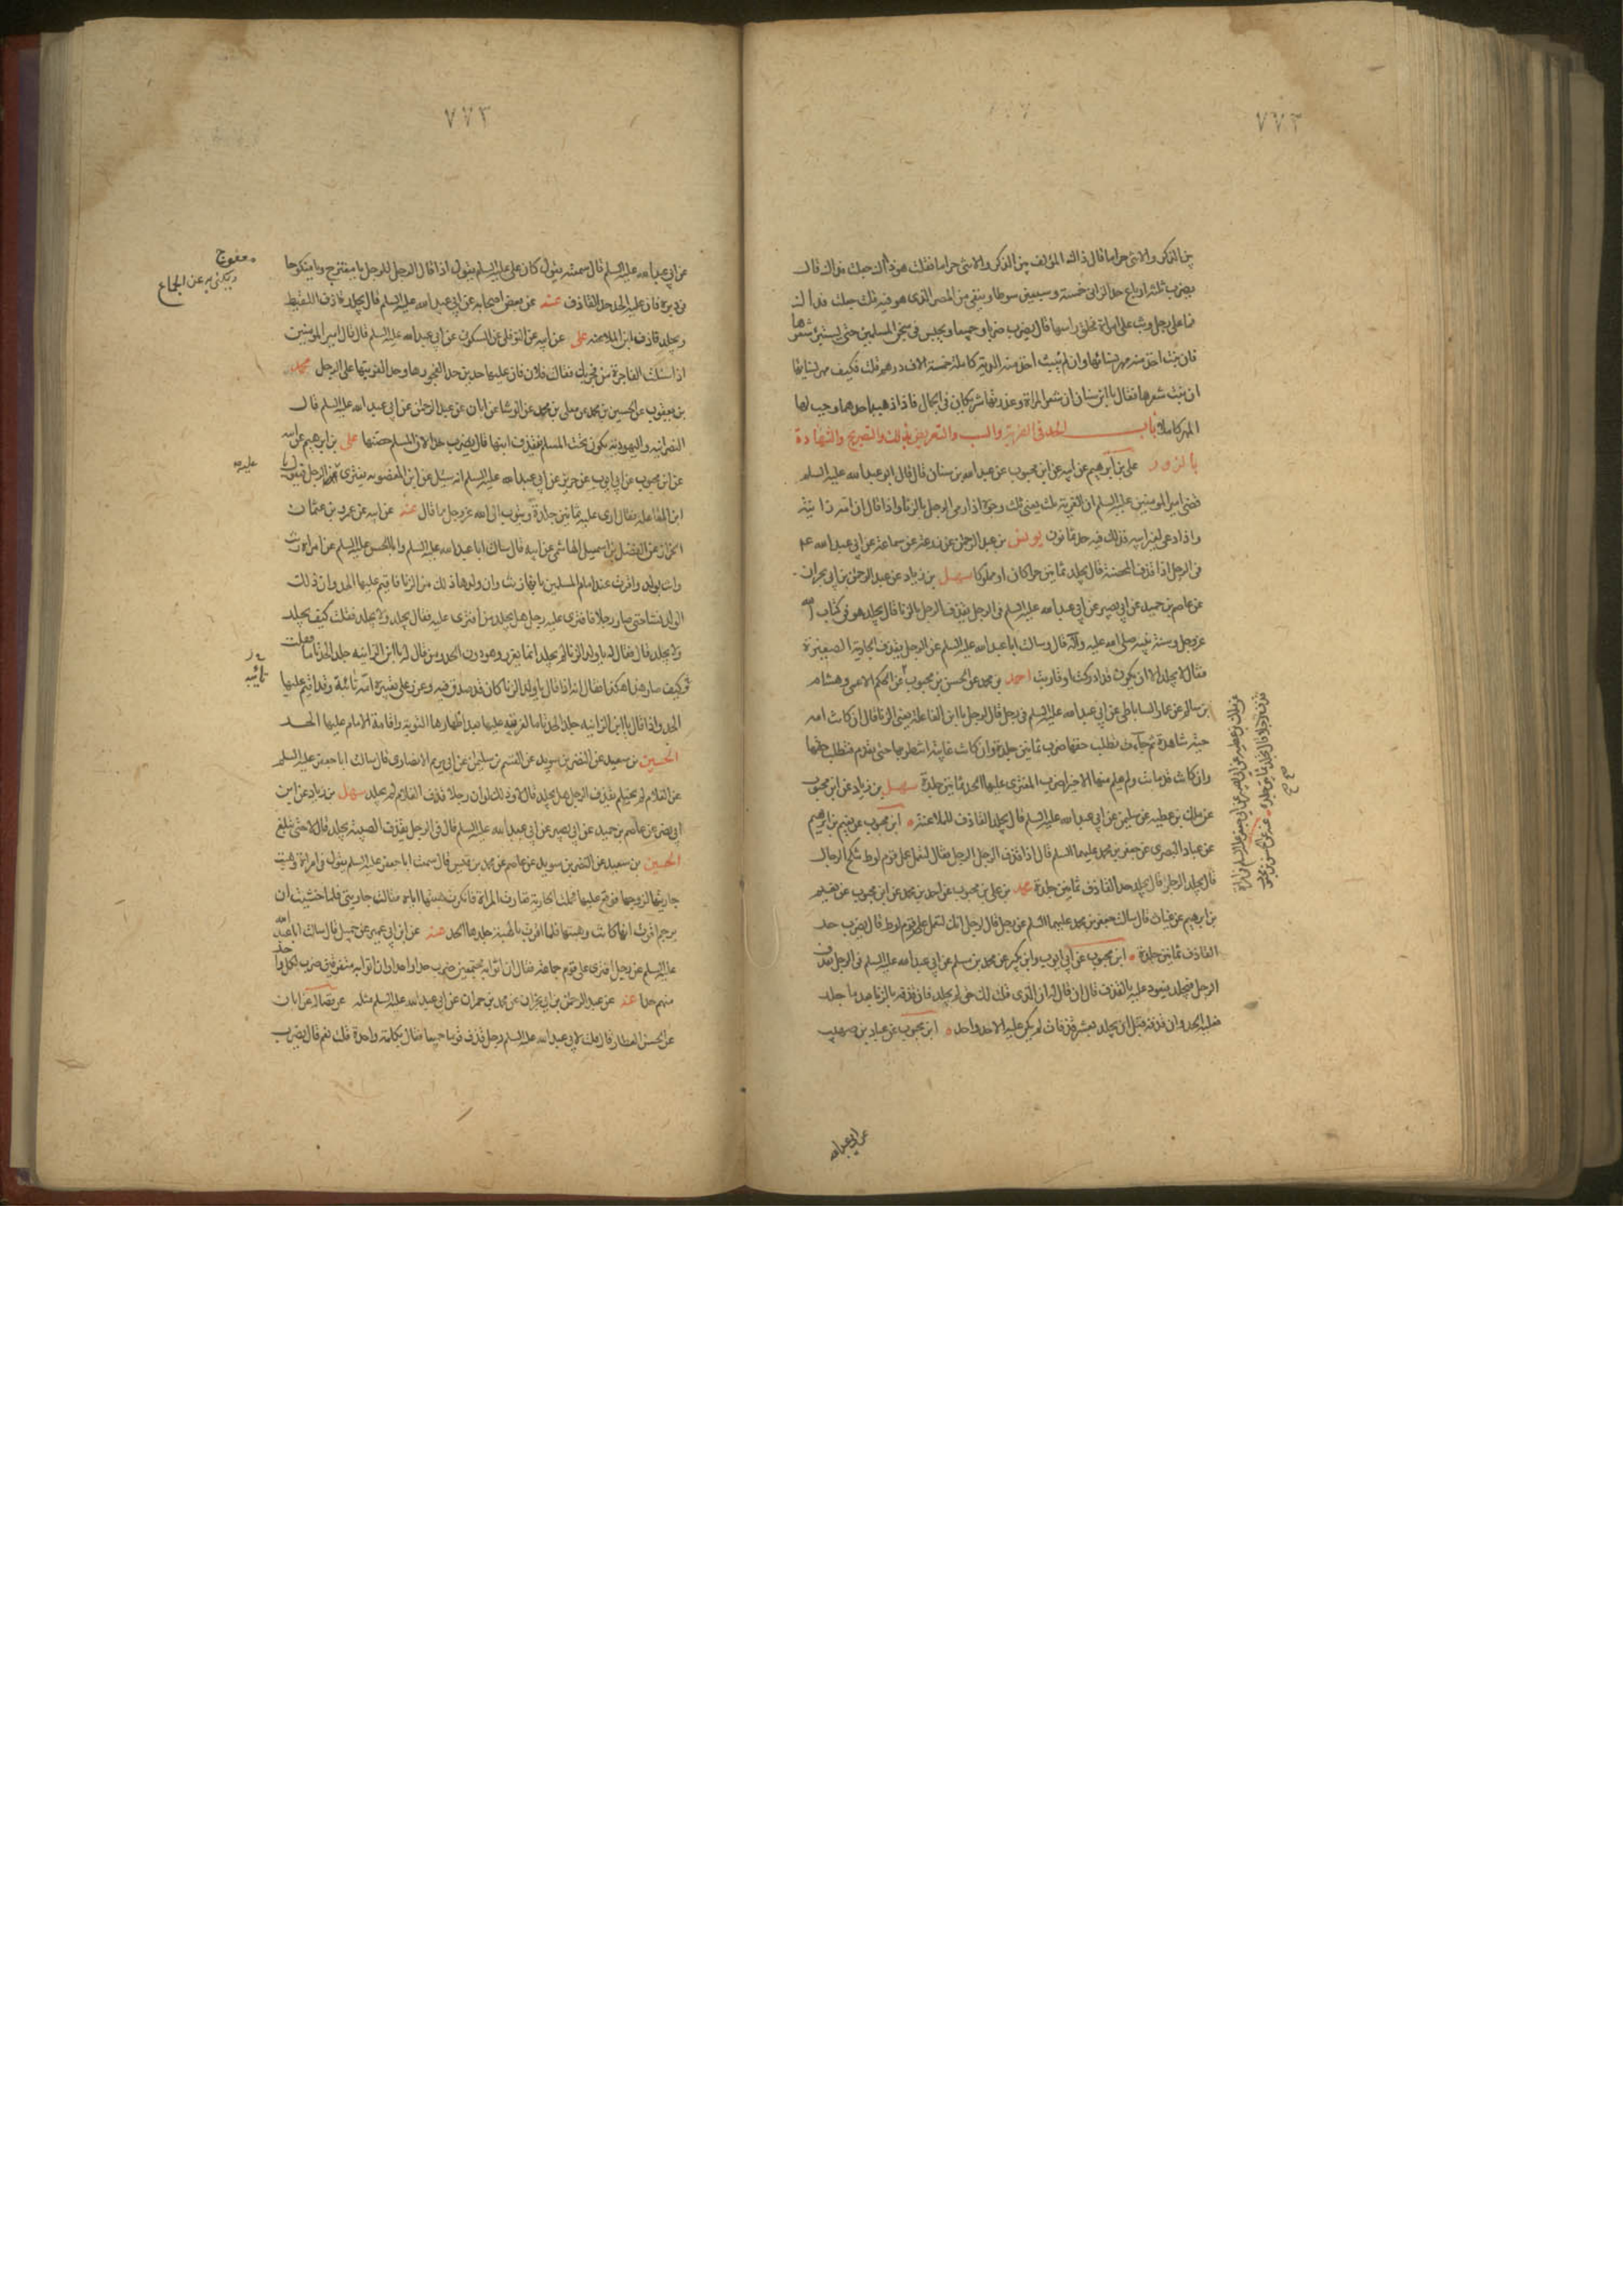 ٧٧٣
بين الذكر والانثى حراما فقال ذاك المؤلف بين الذكر والانثى حراما فقلت هو ذاك جعلت فداك قال
يضرب ثلثة ارباع حد الزاني خمسة وسبعين سوطا وينفى من المصر الذى هو فيه فقلت جعلت فداك
فما على رجل وثب على امراة فحلق راسها قال يضرب ضربا وجيعا ويحبس فى سجن المسلمين حتى يستبرئ شعرها
فان نبت اخذ منه مهر نسائها وان لم ينبت اخذ منه الدية كاملة خمسة الاف درهم قلت فكيف مهر نسائها
ان نبت شعرها فقال يا ابن سنان ان شعر المراة وعذرتها شريكان فى الجمال فاذا ذهب باحدهما وجب لها
المهر كاملا باب الحد فى الفرية والسب والتعريض بذلك والتصريح والشهادة
بالزور على بن ابرهيم عن ابيه عن ابن محبوب عن عبد الله بن سنان قال قال ابو عبد الله عليه السلم
قضى امير المومنين عليه السلم ان الفرية ثلث يعنى ثلث وجوه اذا رمى الرجل بالزنا واذا قال ان امه زانية
واذا دعى لغير ابيه فذلك فيه حد ثمانون يونس بن عبد الرحمن عن زرعة عن سماعة عن ابى عبد الله ع
فى الرجل اذا قذف المحصنة قال يجلد ثمانين حرا كان او مملوكا سهل بن زياد عن عبد الرحمن بن ابى نجران
عن عاصم بن حميد عن ابى بصير عن ابى عبد الله عليه السلم فى الرجل يقذف الرجل بالزنا قال يجلد هو فى كتاب الله
عز وجل وسنة نبيه صلى الله عليه وآله قال وسالت ابا عبد الله عليه السلم عن الرجل يقذف الجارية الصغيرة
فقال لا يجلد الا ان يكون قد ادركت او قاربت احمد بن محمد عن الحسن بن محبوب عن الحكم الاعمى وهشام
بن سالم عن عمار الساباطى عن ابى عبد الله عليه السلم فى رجل قال لرجل يا ابن الفاعلة يعنى الزنا فقال ان كانت امه
حية شاهدة ثم جاءت تطلب حقها ضرب ثمانين جلدة وان كانت غايبة انتظر بها حتى تقدم فتطلب حقها
وان كانت قد ماتت ولم يعلم منها الا خيرا ضرب المفترى عليها الحد ثمانين جلدة سهل بن زياد عن ابن محبوب
عن ملك بن عطية عن سليمن عن ابى عبد الله عليه السلم قال يجلد القاذف للملاعنة ابن محبوب عن نعيم بن ابرهيم
عن عباد البصرى عن جعفر بن محمد عليهما السلم قال اذا قذف الرجل الرجل فقال لتعمل عمل قوم لوط تنكح الرجال
قال يجلد الرجل قال يجلد حد القاذف ثمانين جلدة محمد بن على بن محبوب عن احمد بن محمد عن ابن محبوب عن نعيم
بن ابرهيم عن غياث قال سالت جعفر بن محمد عليهما السلم عن رجل قال لرجل انك لتعمل عمل قوم لوط قال يضرب حد
القاذف ثمانين جلدة ابن محبوب عن ابى ايوب وابن بكير عن محمد بن مسلم عن ابى عبد الله عليه السلم فى الرجل يقذف
الرجل فيجلد فيعود عليه بالقذف قال ان قال له ان الذى قلت لك حق لم يجلد فان قذفه بالزنا بعد ما جلد
فعليه الحد وان قذفه قبل ان يجلد بعشر قذفات لم يكن عليه الا حد واحد ابن محبوب عن عباد بن صهيب
عن ابى عبد الله
٧٧٣
عن ابى عبد الله عليه السلم قال سمعته يقول كان على عليه السلم يقول اذا قال الرجل للرجل يا مفتوح ويا منكوحا
فى دبره فان عليه الحد حد القاذف عنه عن بعض اصحابه عن ابى عبد الله عليه السلم قال يجلد قاذف اللقيط
ويجلد قاذف ابن الملاعنة على عن ابيه عن النوفلى عن السكونى عن ابى عبد الله عليه السلم قال قال امير المومنين
اذا سئلت الفاجرة من فجر بك فقالت فلان فان عليها حدين حد لفجورها وحد لفريتها على الرجل محمد
بن يعقوب عن الحسين بن محمد عن معلى بن محمد عن الوشا عن ابان عن عبد الرحمن عن ابى عبد الله عليه السلم قال
النصرانية واليهودية تكون تحت المسلم فيقذف ابنها قال يضرب حدا لان المسلم حصنها على بن ابرهيم عن ابيه
عن ابن محبوب عن ابى ايوب عن حريز عن ابى عبد الله عليه السلم انه سئل عن ابن المغصوبة يفترى الرجل فيقول يا
ابن الفاعلة فقال ارى عليه ثمانين جلدة ويتوب الى الله عز وجل مما قال عنه عن ابيه عن عمرو بن عثمان
الخزاز عن الفضل بن اسمعيل الهاشمى عن ابيه قال سالت ابا عبد الله عليه السلم وابا الحسن عليه السلم عن امراة زنت
واتت بولد واقرت عند امام المسلمين بانها زنت وان ولدها ذلك من الزنا فاقيم عليها الحد وان ذلك
الولد نشا حتى صار رجلا فافترى عليه رجل هل يجلد من افترى عليه فقال يجلد ولا يجلد فقلت كيف يجلد
ولا يجلد فقال من قال له يا ولد الزنا لم يجلد انما يعزر وهو دون الحد ومن قال له يا ابن الزانية جلد الحد تاما فقلت
وكيف صار هذا هكذا فقال انه اذا قال يا ولد الزنا كان قد صدق فيه وعزر على تعييره امه ثانية وقد اقيم عليها
الحد واذا قال يا ابن الزانية جلد الحد تاما لفريته عليها بعد اظهارها التوبة واقامة الامام عليها الحد
الحسين بن سعيد عن النضر بن سويد عن القسم بن سليمن عن ابى مريم الانصارى قال سالت ابا جعفر عليه السلم
عن الغلام لم يحتلم يقذف الرجل هل يجلد قال لا وذلك لو ان رجلا قذف الغلام لم يجلد سهل بن زياد عن ابن
ابى نصر عن عاصم بن حميد عن ابى بصير عن ابى عبد الله عليه السلم قال فى الرجل يقذف الصبية يجلد قال لا حتى تبلغ
الحسين بن سعيد عن النضر بن سويد عن عاصم عن محمد بن قيس قال سمعت ابا جعفر عليه السلم يقول فى امراة وهبت
جاريتها لزوجها فوقع عليها فحملت الجارية فغارت المراة فانكرت هبتها اياه فقالت جاريتى فلما خشيت ان
يرجم اقرت انها كانت وهبتها فلما اقرت بالهبة جلدها الحد عنه عن ابن ابى عمير عن جميل قال سالت ابا عبد الله
عليه السلم عن رجل افترى على قوم جماعة فقال ان اتوا به مجتمعين ضرب حدا واحدا وان اتوا به متفرقين ضرب لكل واحد
منهم حدا عنه عن عبد الرحمن بن ابى نجران عن محمد بن حمران عن ابى عبد الله عليه السلم مثله عن فضالة عن ابان
عن الحسن العطار قال قلت لابى عبد الله عليه السلم رجل قذف قوما جميعا فقال بكلمة واحدة قلت نعم قال يضرب
مفتوح
ويكنى به عن الجماع
عليه
تائبة